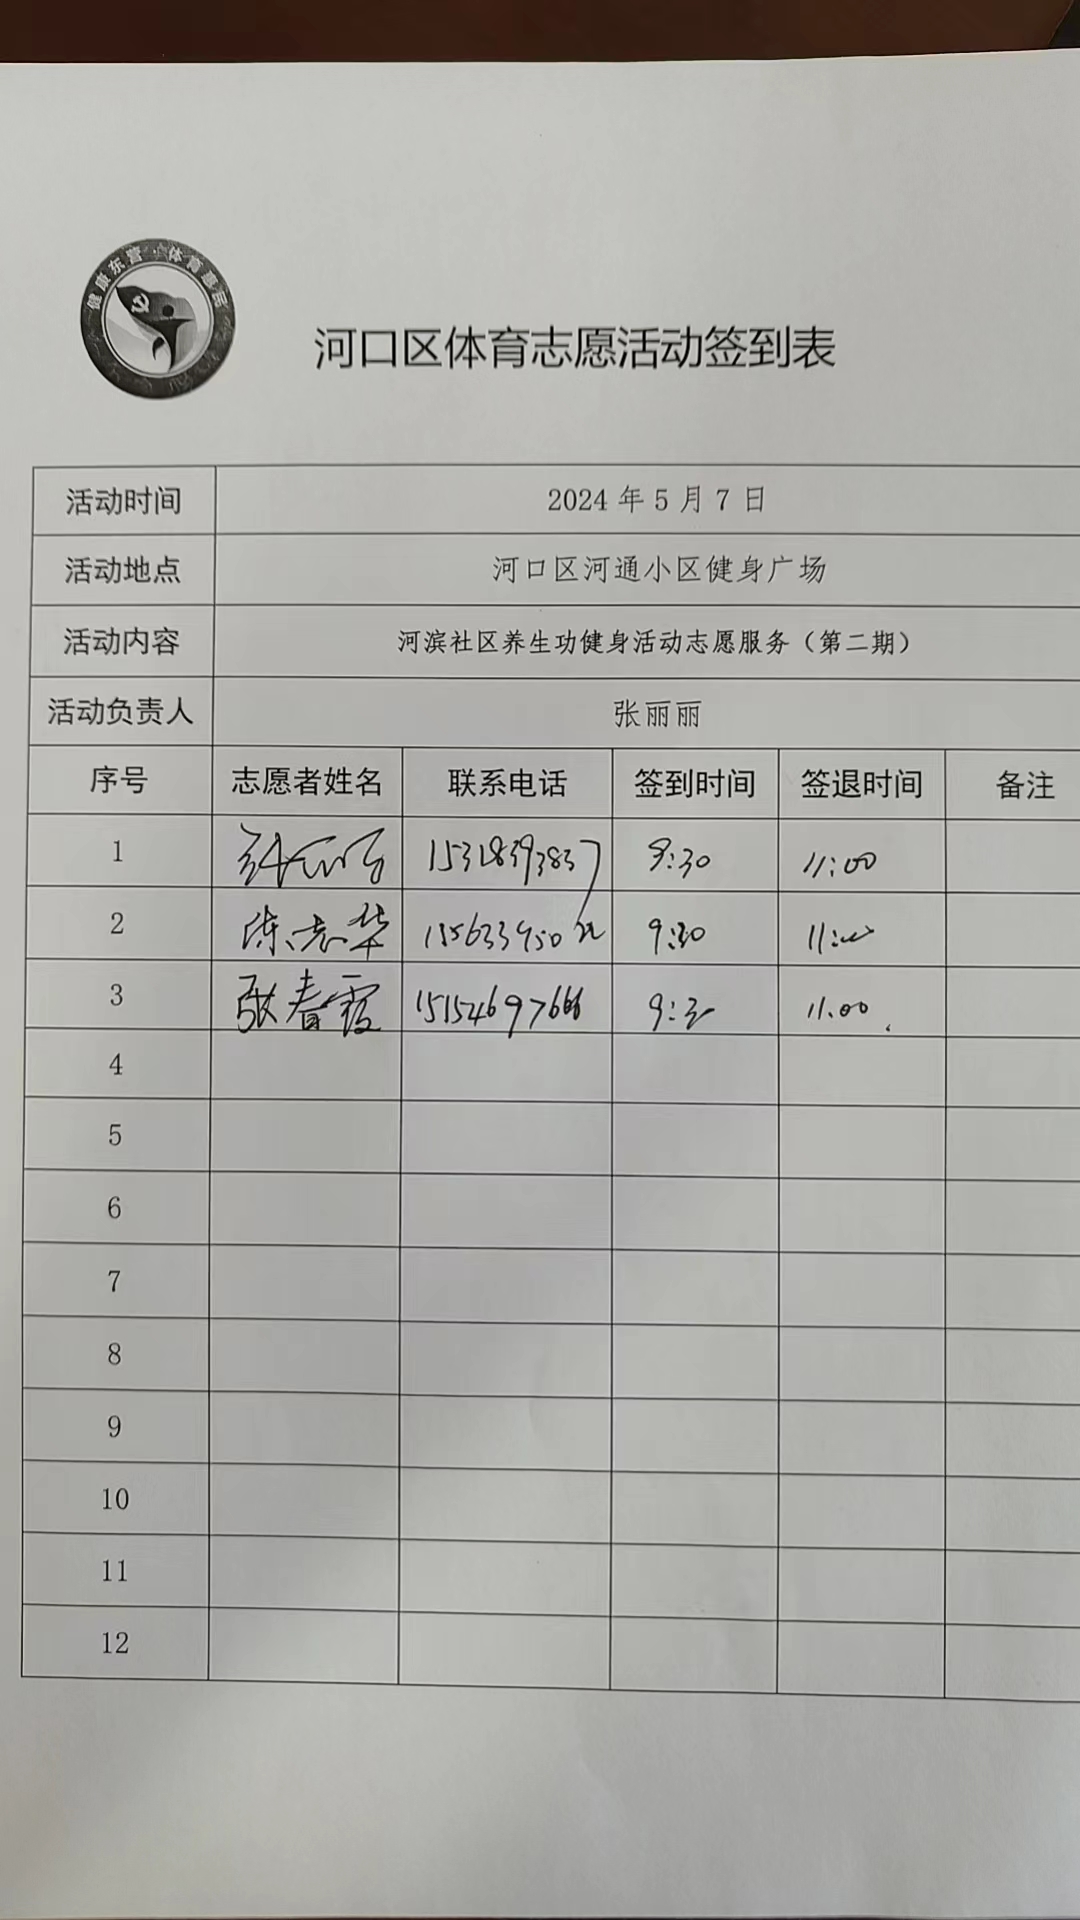 健康东营·体育惠民
河口区体育志愿活动签到表
活动时间 2024年5月7日
活动地点 河口区河通小区健身广场
活动内容 河滨社区养生功健身活动志愿服务（第二期）
活动负责人 张丽丽
序号 志愿者姓名 联系电话 签到时间 签退时间 备注
1 15318393837 9:30 11:00
2 陈志华 9:30 11:00
3 张春霞 15154697666 9:30 11:00
4
5
6
7
8
9
10
11
12